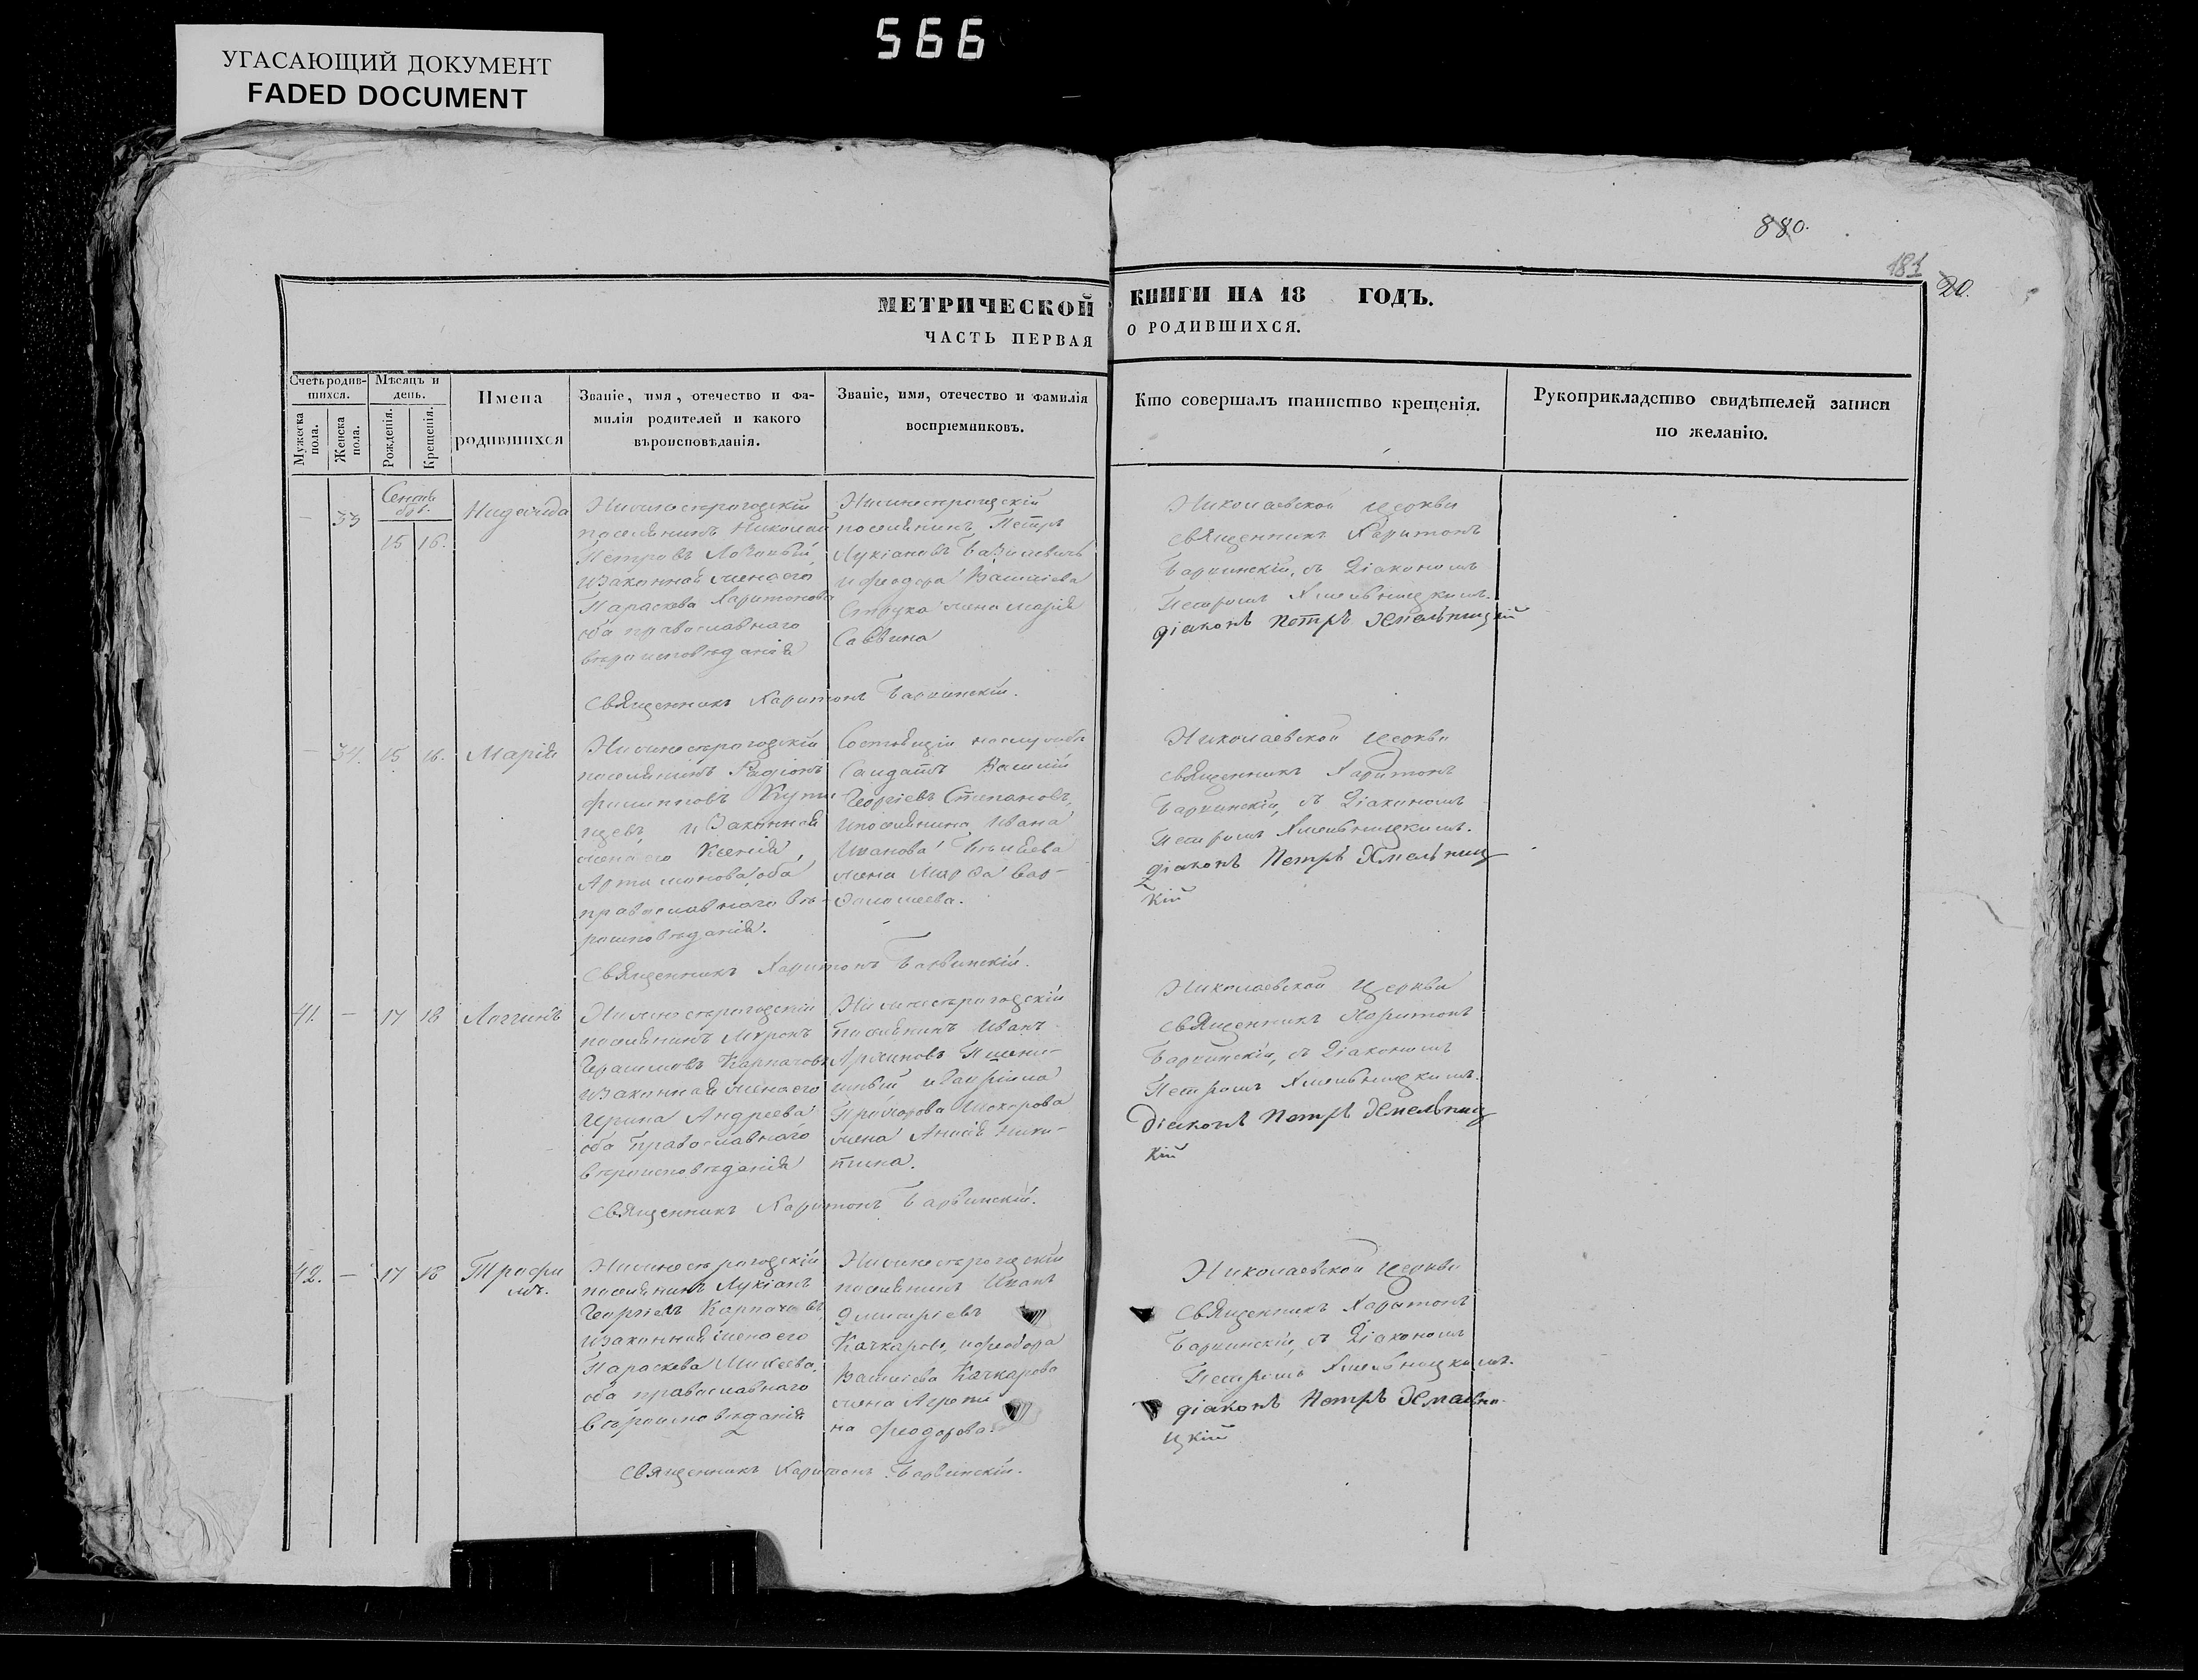 566
УГАСАЮЩИЙ ДОКУМЕНТ
FADED DOCUMENT
880.
184
20.
МЕТРИЧЕСКОЙ КНИГИ НА 18 ГОДЪ.
ЧАСТЬ ПЕРВАЯ О РОДИВШИХСЯ.
Счетъ родив-
шихся.
Мужеска
пола.
Женска
пола.
Мѣсяцъ и
день.
Рожденія.
Крещенія.
Имена
родившихся
Званіе, имя, отечество и фа-
милія родителей и какого
вѣроисповѣданія.
Званіе, имя, отечество и фамилія
воспріемниковъ.
Кто совершалъ таинство крещенія.
Рукоприкладство свидѣтелей записи
по желанію.
Сентяб
бря.
— 33 15 16.
Надежда
Нижнесѣрогозскій
поселянинъ Николай
Петровъ Лозовый,
и законная жена его
Параскева Харитонова
оба православнаго
вѣроисповѣданія
Нижнесѣрогозскій
поселянинъ Петръ
Лукіановъ Базилевичъ
и Феодора Василіева
Струка жена Марія
Саввина
Николаевской церкви
священникъ Харитонъ
Барвинскій, съ Діакономъ
Петромъ Хмельницкимъ.
діаконъ Петръ Хмельницкій
Священникъ Харитонъ Барвинскій.
— 34. 15 16. Марія
Нижнесѣрогозскій
поселянинъ Радіонъ
Филипповъ
и законная
жена его Ксенія
Артамонова, оба
православнаго вѣ-
роисповѣданія.
Состоящій на службѣ
Солдатъ Василій
Георгіевъ Степановъ,
и поселянина Ивана
Иванова
жена Марфа Вар-
фоломеева.
Николаевской церкви
священникъ Харитонъ
Барвинскій, съ Діакономъ
Петромъ Хмельницкимъ.
діаконъ Петръ Хмельниц
кій
Священникъ Харитонъ Барвинскій.
41. — 17 18 Логгинъ
Нижнесѣрогозскій
поселянинъ Миронъ
Герасимовъ Карпачовъ
и законная жена его
Ирина Андреева
оба Православнаго
вѣроисповѣданія
Нижнесѣрогозскій
поселянинъ Иванъ
Архиповъ Пшени-
шный и Гавріила
жена Анисія Ники-
тина.
Николаевской церкви
священникъ Харитонъ
Барвинскій, съ Діакономъ
Петромъ Хмельницкимъ.
Діаконъ Петръ Хмельниц
кій
Священникъ Харитонъ Барвинскій.
42. — 17 18 Трофи
мъ.
Нижнесѣрогозскій
поселянинъ Лукіанъ
Георгіевъ Карпачовъ,
и законная жена его
Параскева Михеева,
оба православнаго
вѣроисповѣданія
Нижнесѣрогозскій
поселянинъ Иванъ
Дмитріевъ
Качкаровъ, и Феодора
Василіева Качкарова
жена Агрипи
на Феодорова.
Николаевской церкви
Священникъ Харитонъ
Барвинскій, съ Діакономъ
Петромъ Хмельницкимъ.
діаконъ Петръ Хмельни-
цкій
Священникъ Харитонъ Барвинскій.